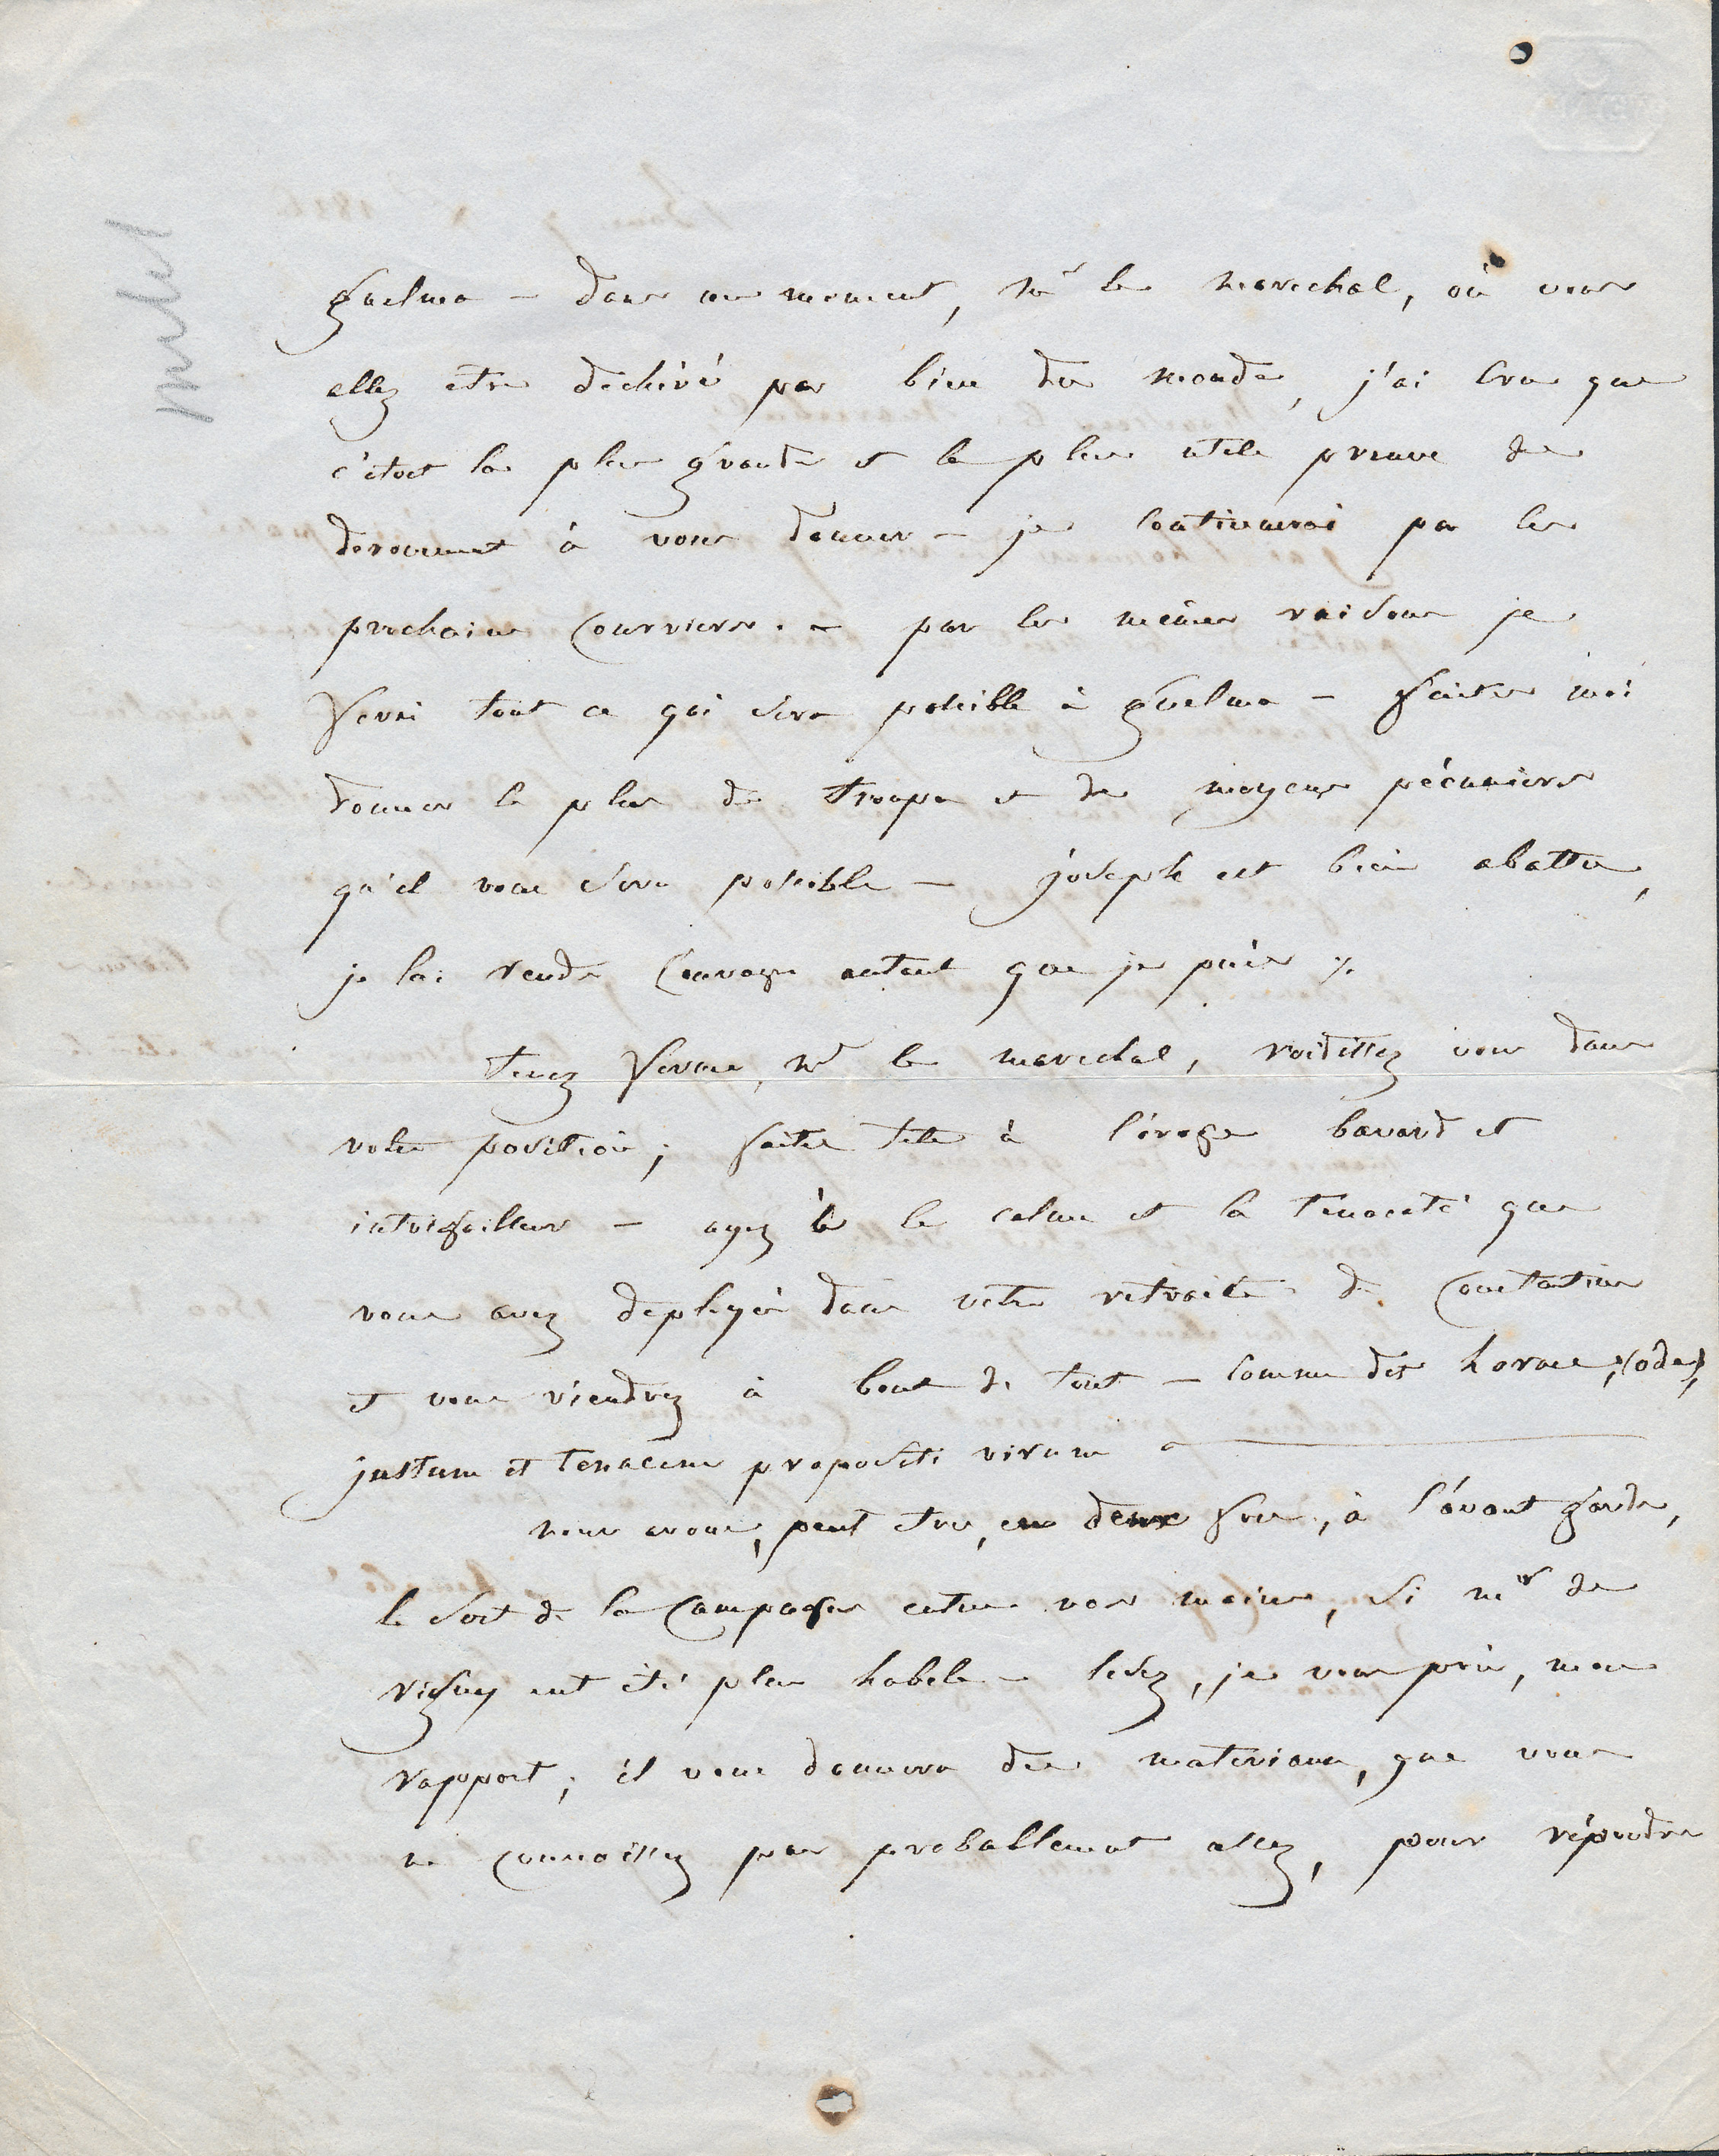 guelma – dans ce moment, Mr le marechal, où vous
allez etre déchiré par bien du monde, j'ai cru que
c'étoit la plus grande et la plus utile preuve de
devouement à vous donner – je continuerai par les
prochains Courriers. – par les mêmes raisons je
ferai tout ce qui sera possible à guelma – faites moi
donner le plus de troupes et de moyens pécuniers
qu'il vous sera possible – joseph est bien abattu,
je lui rends Courage autant que je puis
tenez ferme, Mr le marechal, roidissez vous dans
votre position; faites tete à l'orage bavard et
ayez le calme et la tenacité que
vous avez deployé dans votre retraite de Constantine
et vous viendrez à bout de tout – comme dit horace, (odes),
justum et tenacem propositi virum
nous avons, peut etre, eu deux fois, à l'avant garde,
le sort de la Campagne entre nos mains, si mr de
rigny eut été plus habile – lisez, je vous prie, mon
rapport; il vous donnera des materiaux, que vous
ne connoissez pas probablement assez, pour répondre